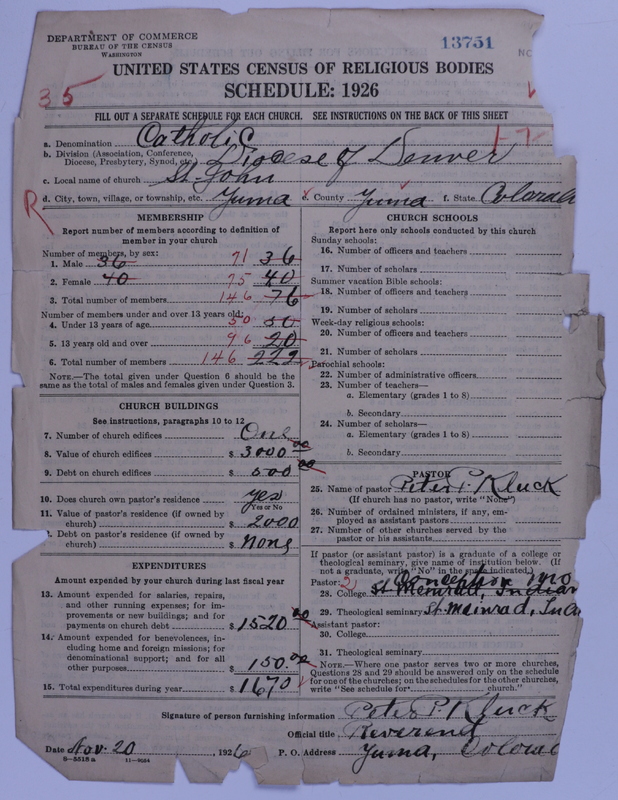 DEPARTMENT OF COMMERCE
BUREAU OF THE CENSUS
WASHINGTON
13751
NC
UNITED STATES CENSUS OF RELIGIOUS BODIES
SCHEDULE: 1926
35
FILL OUT A SEPARATE SCHEDULE FOR EACH CHURCH. SEE INSTRUCTIONS ON THE BACK OF THIS SHEET
1-7-
a. Denomination Catholic
b. Division (Association, Conference,
Diocese, Presbytery, Synod, etc.) Diocese of Denver
c. Local name of church St. John
d. City, town, village, or township, etc. Yuma e. County Yuma f. State Colorado
R
MEMBERSHIP
Report number of members according to definition of
member in your church
Number of members, by sex:
1. Male 36 71 36
2. Female 40 75 40
3. Total number of members 146 76
Number of members under and over 13 years old:
4. Under 13 years of age 50 50
5. 13 years old and over 96 20
6. Total number of members 146 222
NOTE.—The total given under Question 6 should be the
same as the total of males and females given under Question 3.
CHURCH BUILDINGS
See instructions, paragraphs 10 to 12
7. Number of church edifices One
8. Value of church edifices $ 3000 00
9. Debt on church edifices $ 500 00
10. Does church own pastor's residence yes
Yes or No
11. Value of pastor's residence (if owned by
church) $ 2000
2. Debt on pastor's residence (if owned by
church) $ none
EXPENDITURES
Amount expended by your church during last fiscal year
13. Amount expended for salaries, repairs,
and other running expenses; for im-
provements or new buildings; and for
payments on church debt $ 1520 00
14. Amount expended for benevolences, in-
cluding home and foreign missions; for
denominational support; and for all
other purposes $ 150 00
15. Total expenditures during year $ 1670
CHURCH SCHOOLS
Report here only schools conducted by this church
Sunday schools:
16. Number of officers and teachers
17. Number of scholars
Summer vacation Bible schools:
18. Number of officers and teachers
19. Number of scholars
Week-day religious schools:
20. Number of officers and teachers
21. Number of scholars
Parochial schools:
22. Number of administrative officers
23. Number of teachers—
a. Elementary (grades 1 to 8)
b. Secondary
24. Number of scholars—
a. Elementary (grades 1 to 8)
b. Secondary
PASTOR
25. Name of pastor Peter P. Kluck
(If church has no pastor, write "None")
26. Number of ordained ministers, if any, em-
ployed as assistant pastors
27. Number of other churches served by the
pastor or his assistants
If pastor (or assistant pastor) is a graduate of a college or
theological seminary, give name of institution below. (If
not a graduate, write "No" in the space indicated.)
Pastor: 2 Conception Mo
28. College St Meinrad, Indian
29. Theological seminary St. Meinrad, Ind
Assistant pastor:
30. College
31. Theological seminary
NOTE.—Where one pastor serves two or more churches,
Questions 28 and 29 should be answered only on the schedule
for one of the churches; on the schedules for the other churches,
write "See schedule for church."
Signature of person furnishing information Peter P. Kluck
Official title Reverend
Date Nov. 20, 1926 P. O. Address Yuma, Colorado
8-5518 a 11-9024